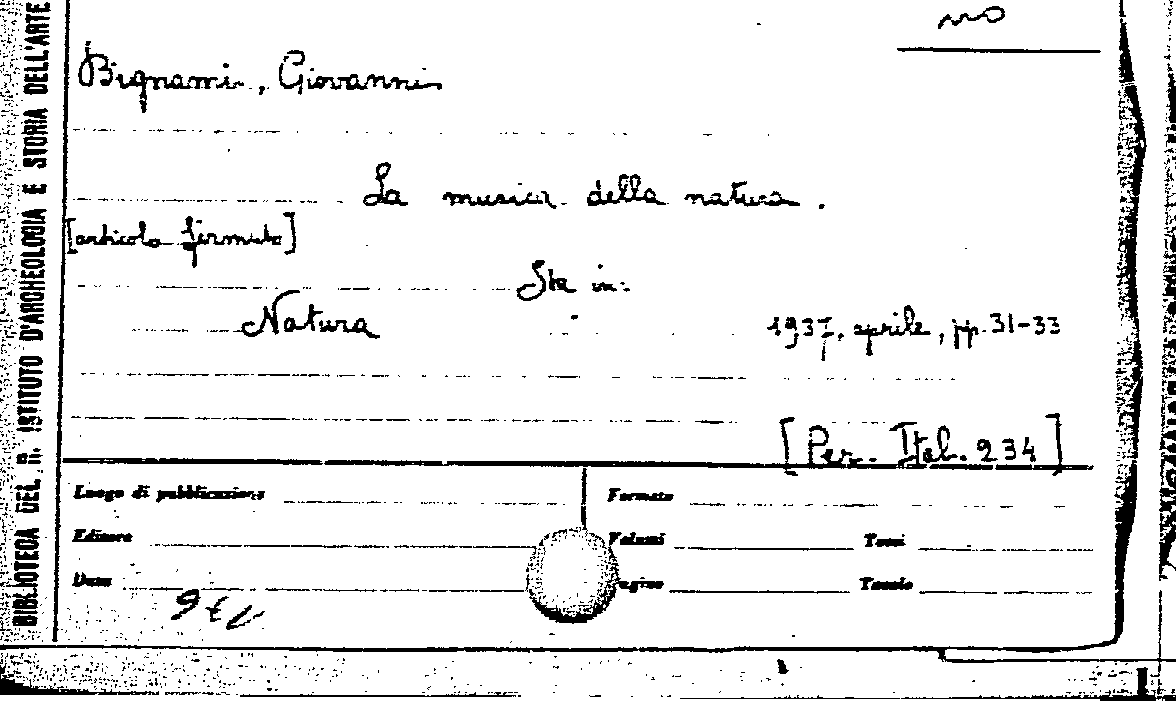 BIBLIOTECA DEL R. ISTITUTO D'ARCHEOLOGIA E STORIA DELL'ARTE
no
Bignami, Giovanni
La musica della natura.
[articolo firmato]
Sta in:
Natura
1937, aprile, pp. 31-33
[Per. Ital. 234]
Luogo di pubblicazione
Formato
Editore
Volumi
Tomi
Data
Pagine
Tavole